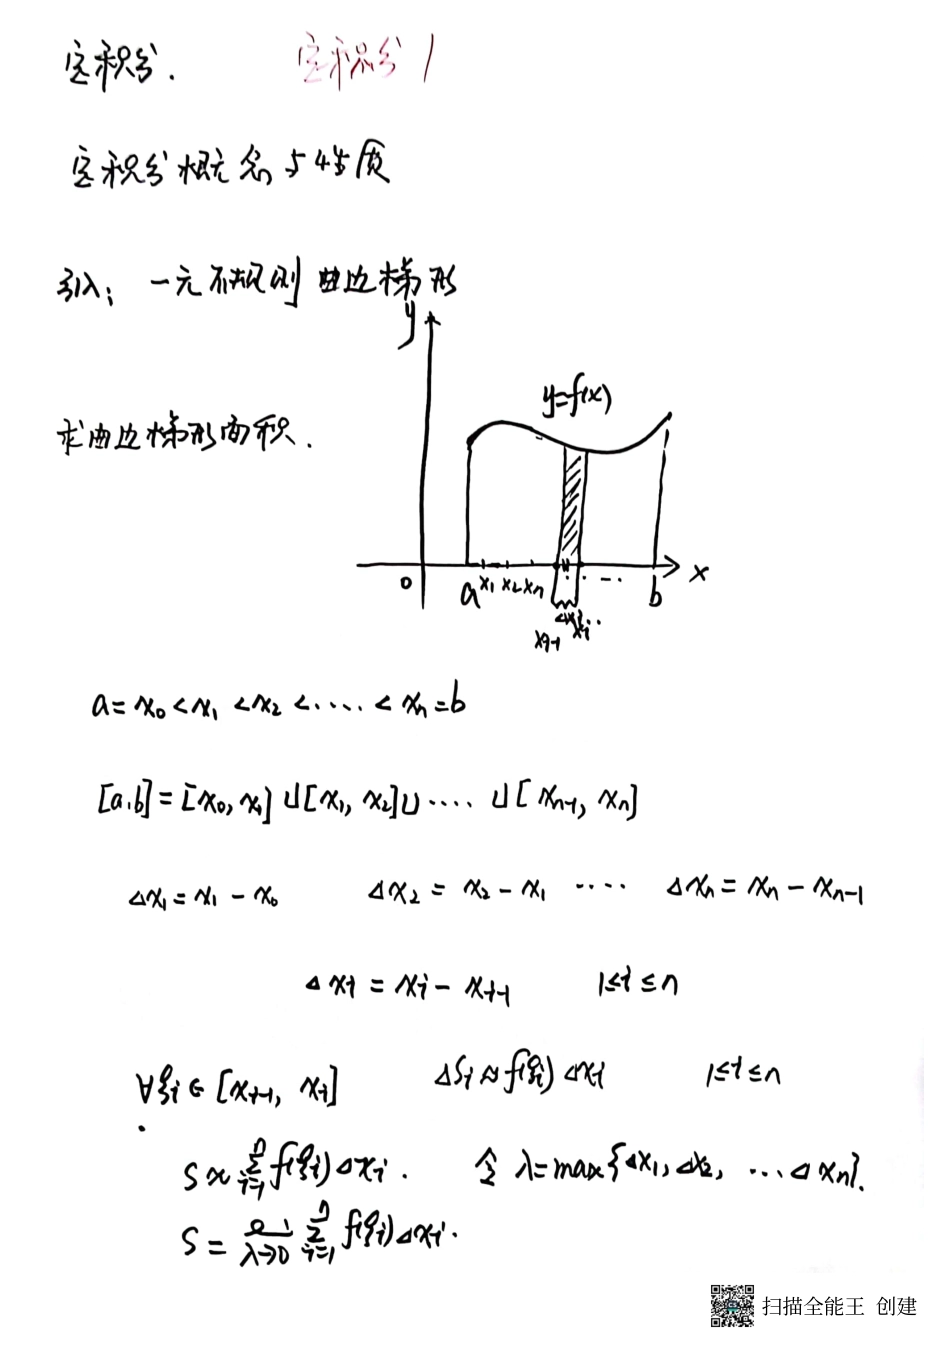 定积分. 定积分1
定积分概念与性质
引入: 一元不规则曲边梯形
y
y=f(x)
求曲边梯形面积.
0 a x₁ x₂ xₙ ... b x
Δxᵢ
xᵢ₋₁ xᵢ
a=x₀<x₁<x₂<....<xₙ=b
[a.b]=[x₀,x₁]∪[x₁,x₂]∪....∪[xₙ₋₁,xₙ]
Δx₁=x₁-x₀ Δx₂=x₂-x₁ .... Δxₙ=xₙ-xₙ₋₁
Δxᵢ=xᵢ-xᵢ₋₁ 1≤i≤n
∀ξᵢ∈[xᵢ₋₁,xᵢ] ΔSᵢ≈f(ξᵢ)Δxᵢ 1≤i≤n
S≈∑ⁿᵢ₌₁f(ξᵢ)Δxᵢ. 令 λ=max{Δx₁,Δx₂,...Δxₙ}.
S=lim λ→0 ∑ⁿᵢ₌₁f(ξᵢ)Δxᵢ.
扫描全能王 创建